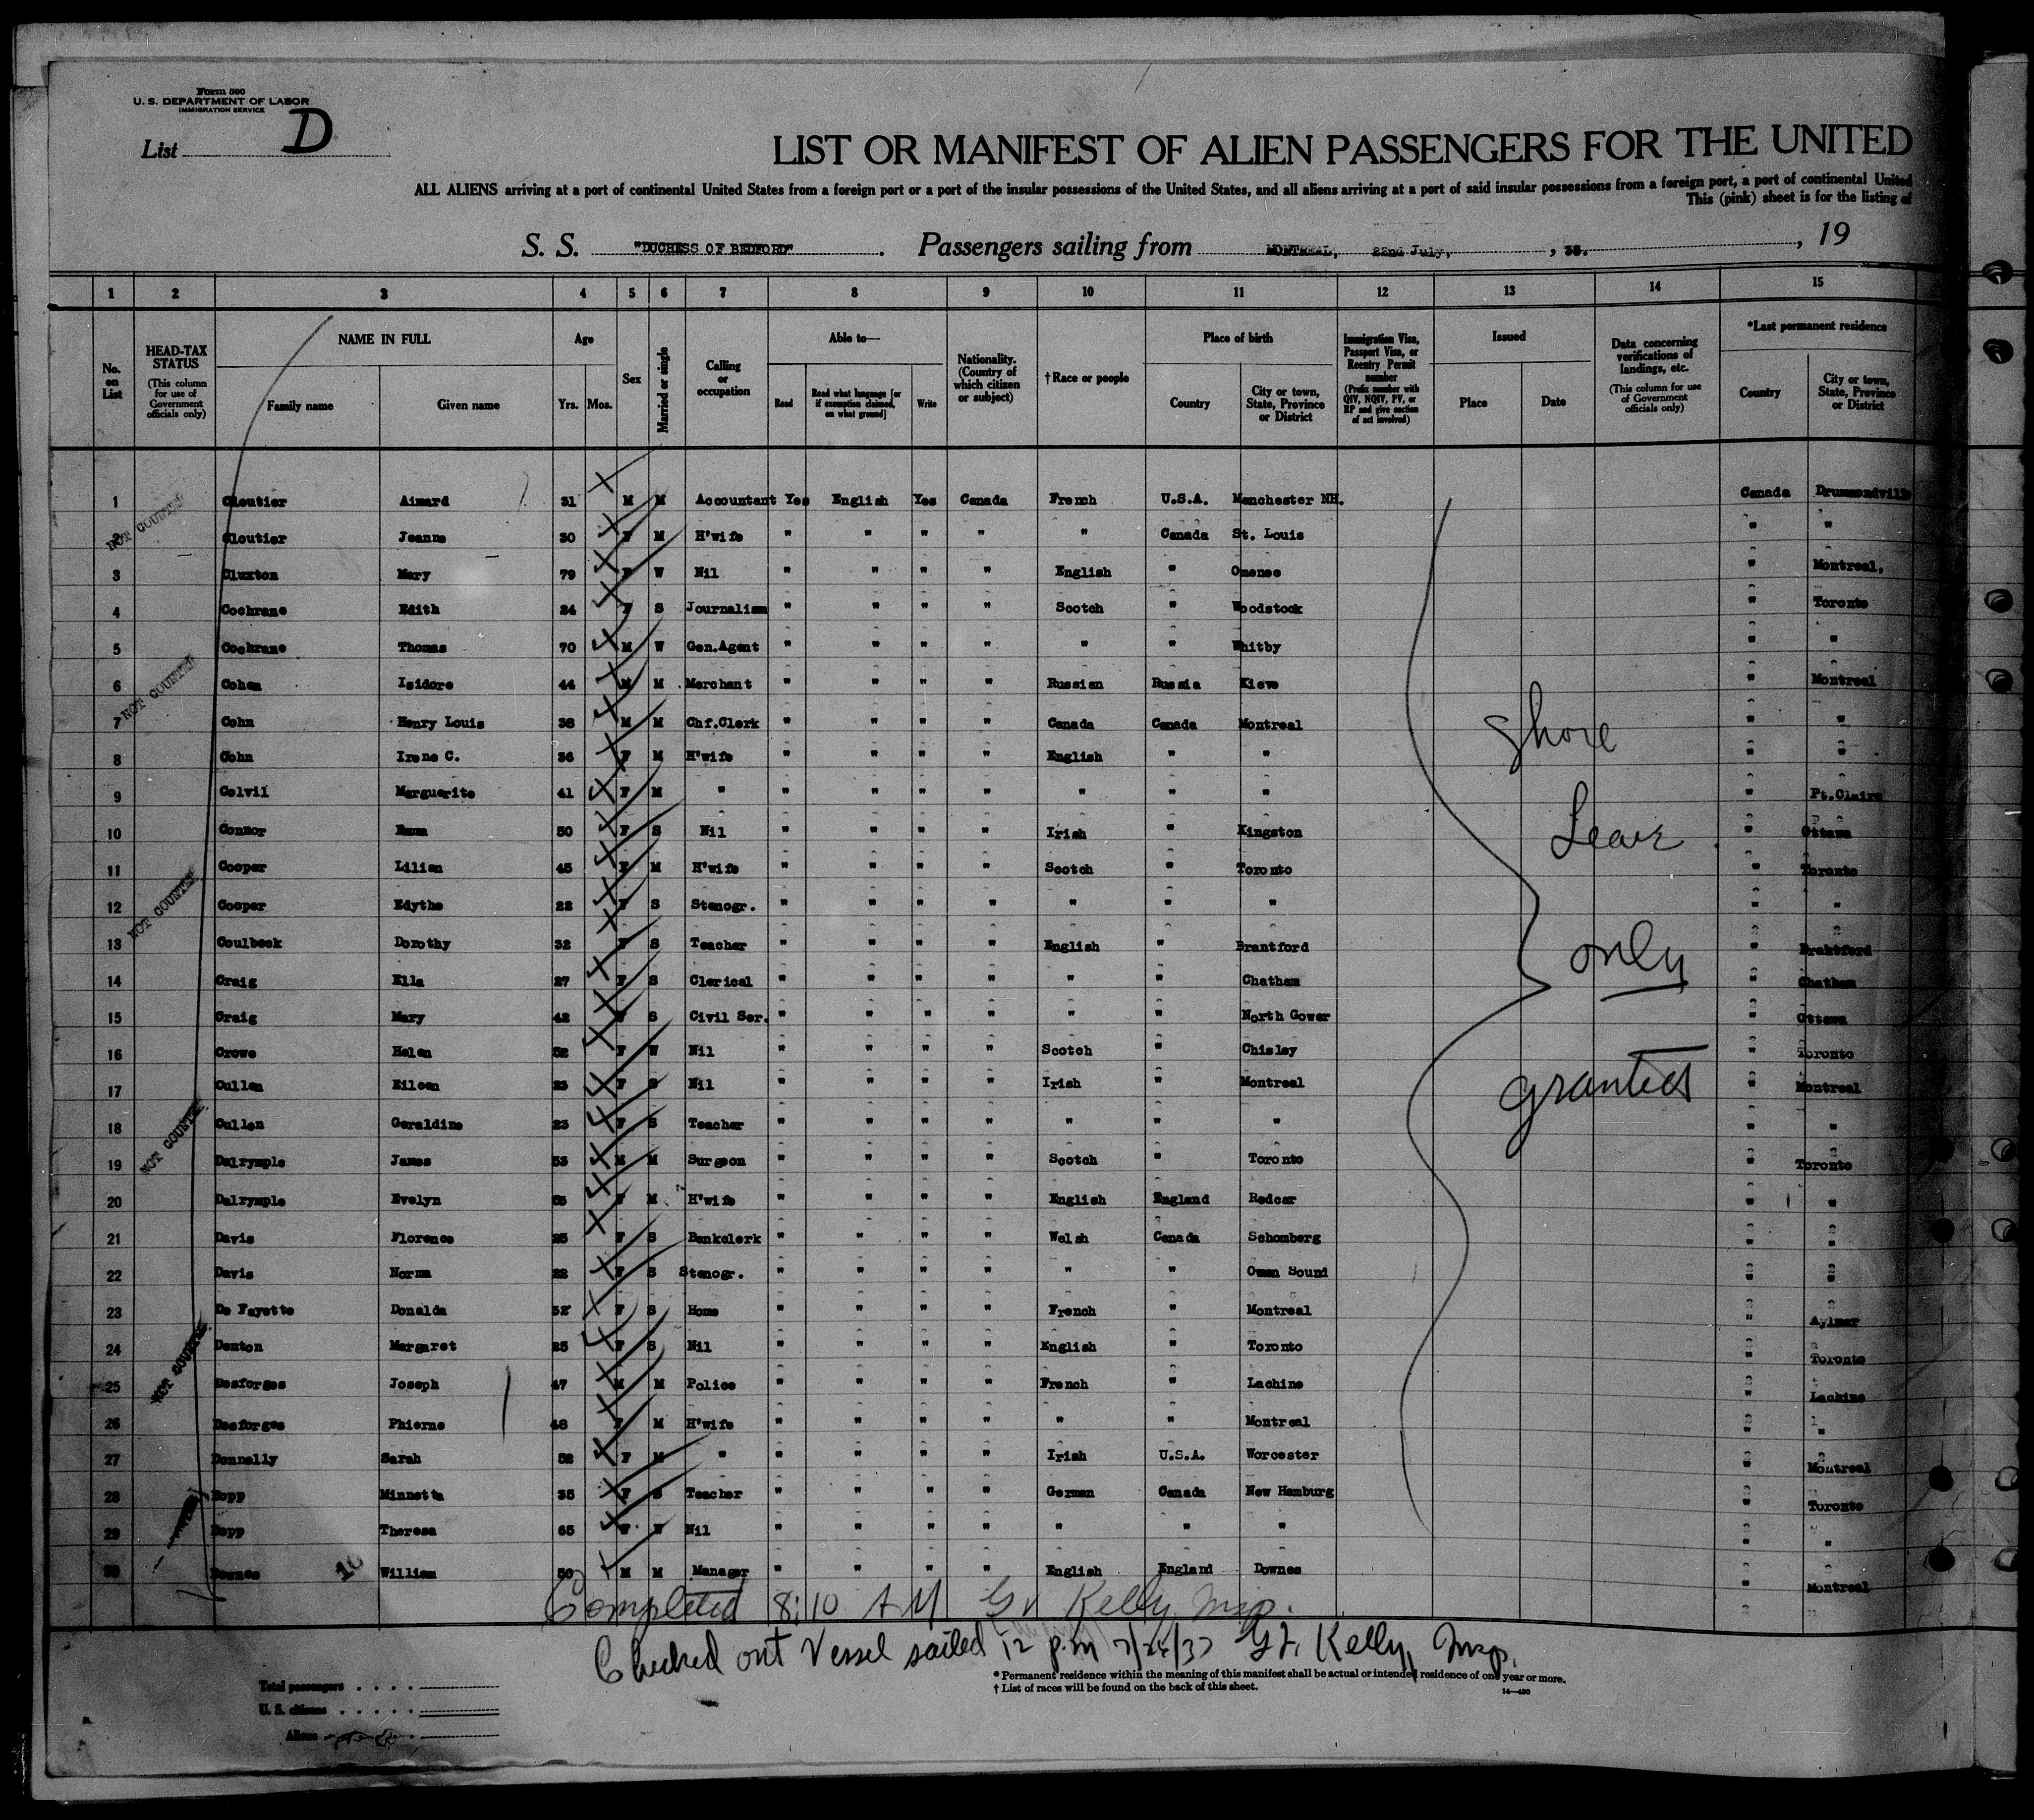 Form 500
U. S. DEPARTMENT OF LABOR
IMMIGRATION SERVICE
List D
LIST OR MANIFEST OF ALIEN PASSENGERS FOR THE UNITED
ALL ALIENS arriving at a port of continental United States from a foreign port or a port of the insular possessions of the United States, and all aliens arriving at a port of said insular possessions from a foreign port, a port of continental United
This (pink) sheet is for the listing of
S. S. "DUCHESS OF BEDFORD". Passengers sailing from MONTREAL, 22nd July, , 19
1 2 3 4 5 6 7 8 9 10 11 12 13 14 15
No. on List
HEAD-TAX STATUS (This column for use of Government officials only)
NAME IN FULL
Family name Given name
Age
Yrs. Mos.
Sex
Married or single
Calling or occupation
Able to—
Read Read what language [or if exemption claimed, on what ground] Write
Nationality. (Country of which citizen or subject)
†Race or people
Place of birth
Country City or town, State, Province or District
Immigration Visa, Passport Visa, or Reentry Permit number (Prefix number with QIV, NQIV, PV, or RP and give section of act involved)
Issued
Place Date
Data concerning verifications of landings, etc. (This column for use of Government officials only)
*Last permanent residence
Country City or town, State, Province or District
1 Cloutier Aimard 31 M M Accountant Yes English Yes Canada French U.S.A. Manchester NH. Canada Drummondville
2 Cloutier Jeanne 30 F M H'wife " " " " " Canada St. Louis " "
3 Cluxton Mary 79 F W Nil " " " " English " Omemee " Montreal.
4 Cochrane Edith 24 F S Journalism " " " " Scotch " Woodstock " Toronto
5 Cochrane Thomas 70 M W Gen.Agent " " " " " " Whitby " "
6 Cohen Isidore 44 M M Merchant " " " " Russian Russia Kiew " Montreal
7 Cohn Henry Louis 38 M M Chf.Clerk " " " " Canada Canada Montreal " "
8 Cohn Irene C. 36 F M H'wife " " " " English " " " "
9 Colvil Marguerite 41 F M " " " " " " " " " Pt.Claire
10 Connor Emma 50 F S Nil " " " " Irish " Kingston " Ottawa
11 Cooper Lilian 45 F M H'wife " " " " Scotch " Toronto " Toronto
12 Cooper Edythe 22 F S Stenogr. " " " " " " " " "
13 Coulbeck Dorothy 32 F S Teacher " " " " English " Brantford " Brantford
14 Craig Ella 27 F S Clerical " " " " " " Chatham " Chatham
15 Craig Mary 42 F S Civil Ser. " " " " " " North Gower " Ottawa
16 Crowe Helen 52 F W Nil " " " " Scotch " Chisley " Toronto
17 Cullen Eileen 23 F S Nil " " " " Irish " Montreal " Montreal
18 Cullen Geraldine 23 F S Teacher " " " " " " " " "
19 Dalrymple James 53 M M Surgeon " " " " Scotch " Toronto " Toronto
20 Dalrymple Evelyn F M H'wife " " " " English England Redcar " "
21 Davis Florence 25 F S Bankclerk " " " " Welsh Canada Schomberg " "
22 Davis Norma 22 F S Stenogr. " " " " " " Owen Sound " "
23 De Fayette Donalda 32 F S Home " " " " French " Montreal " Aylmer
24 Denton Margaret 25 F S Nil " " " " English " Toronto " Toronto
25 Desforges Joseph 47 M M Police " " " " French " Lachine " Lachine
26 Desforges Phierne 48 F M H'wife " " " " " " Montreal " "
27 Donnelly Sarah 52 F M " " " " " Irish U.S.A. Worcester " Montreal
28 Dopp Minnetta 35 F S Teacher " " " " German Canada New Hamburg " Toronto
29 Dopp Theresa 65 F W Nil " " " " " " " " "
30 Downes William 50 M M Manager " " " " English England Downes " Montreal
10
NOT COUNTED
NOT COUNTED
NOT COUNTED
NOT COUNTED
NOT COUNTED
Shore
Leave
only
granted
Completed 8:10 AM Kelly Insp.
Checked out Vessel sailed 12 p.m Kelly, Insp.
* Permanent residence within the meaning of this manifest shall be actual or intended residence of one year or more.
† List of races will be found on the back of this sheet.
14—430
Total passengers
U. S. citizens
Aliens